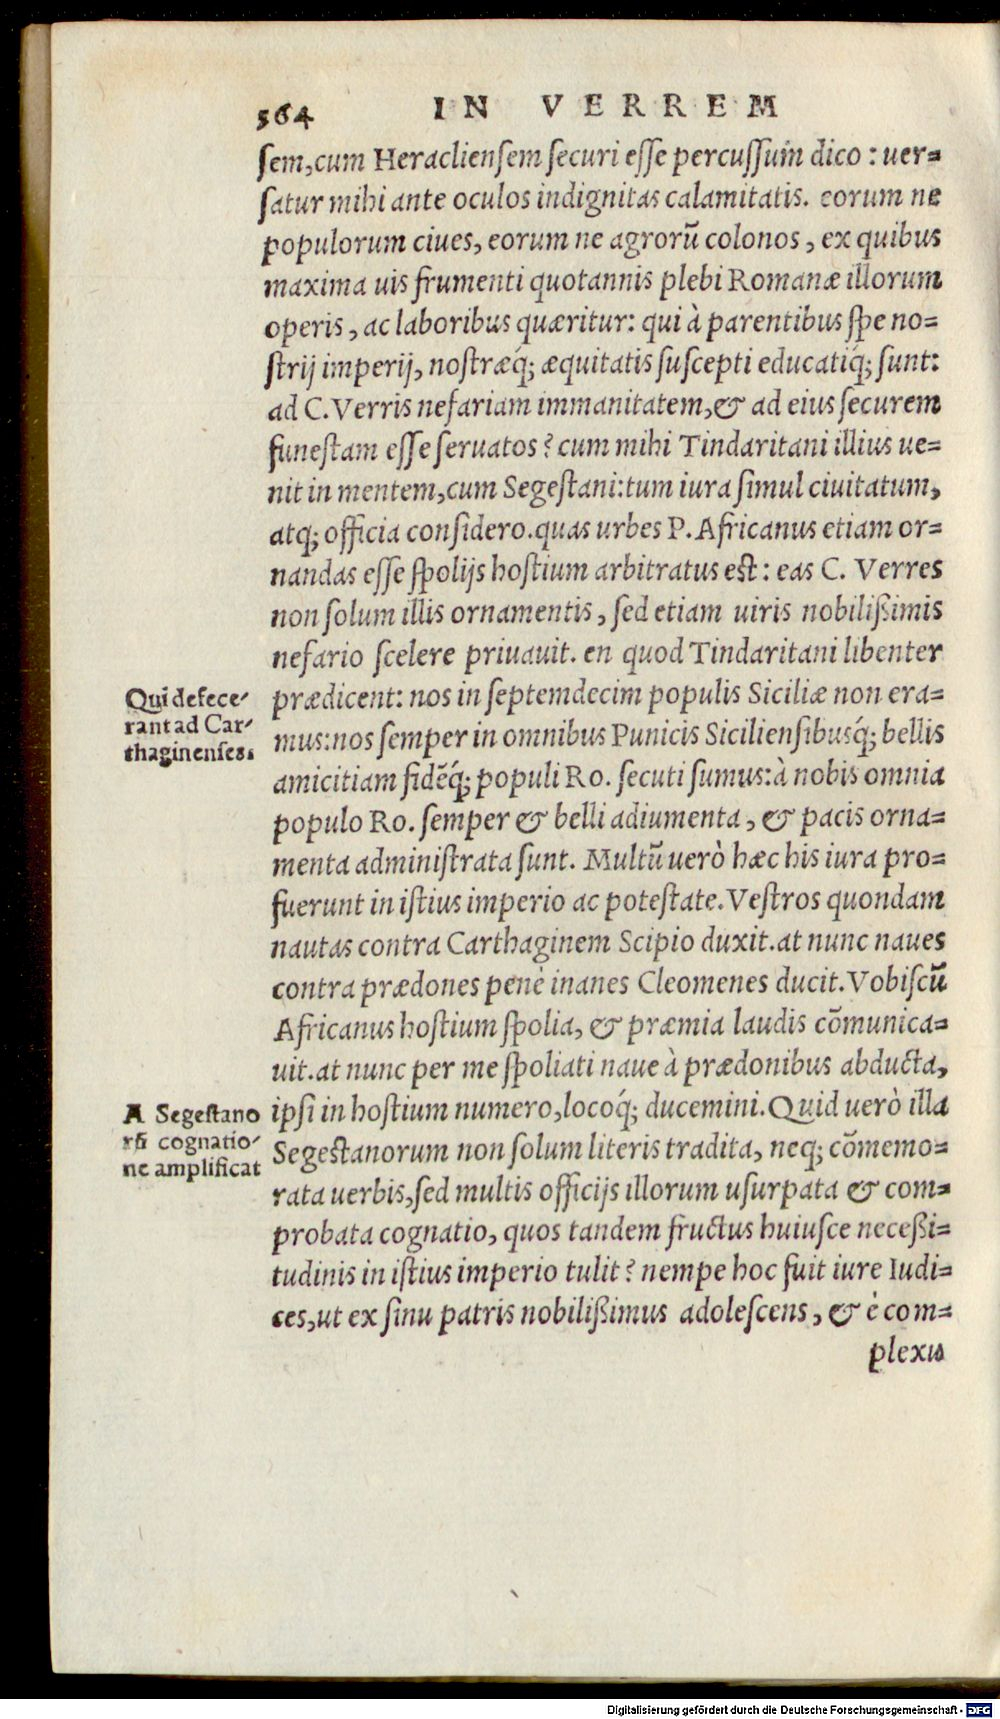 564 IN VERREM
sem, cum Heracliensem securi esse percussum dico : uer=
satur mihi ante oculos indignitas calamitatis. eorum ne
populorum ciues, eorum ne agrorũ colonos, ex quibus
maxima uis frumenti quotannis plebi Romanæ illorum
operis, ac laboribus quæritur: qui à parentibus spe no=
strij imperij, nostræq́; æquitatis suscepti educatiq́; sunt:
ad C. Verris nefariam immanitatem, & ad eius securem
funestam esse seruatos? cum mihi Tindaritani illius ue=
nit in mentem, cum Segestani: tum iura simul ciuitatum,
atq; officia considero. quas urbes P. Africanus etiam or=
nandas esse spolijs hostium arbitratus est: eas C. Verres
non solum illis ornamentis, sed etiam uiris nobilißimis
nefario scelere priuauit. en quod Tindaritani libenter
Qui defece-
rant ad Car-
thaginenses.
prædicent: nos in septemdecim populis Siciliæ non era=
mus: nos semper in omnibus Punicis Siciliensibusq́; bellis
amicitiam fidẽq́; populi Ro. secuti sumus: à nobis omnia
populo Ro. semper & belli adiumenta, & pacis orna=
menta administrata sunt. Multũ uerò hæc his iura pro=
fuerunt in istius imperio ac potestate. Vestros quondam
nautas contra Carthaginem Scipio duxit. at nunc naues
contra prædones penè inanes Cleomenes ducit. Vobiscũ
Africanus hostium spolia, & præmia laudis cõmunica=
uit. at nunc per me spoliati naue à prædonibus abducta,
A Segestano
rũ cognatio-
ne amplificat
ipsi in hostium numero, locoq́; ducemini. Quid uerò illa
Segestanorum non solum literis tradita, neq; cõmemo=
rata uerbis, sed multis officijs illorum usurpata & com=
probata cognatio, quos tandem fructus huiusce neceßi=
tudinis in istius imperio tulit? nempe hoc fuit iure Iudi=
ces, ut ex sinu patris nobilißimus adolescens, & è com=
plexu
Digitalisierung gefördert durch die Deutsche Forschungsgemeinschaft - DFG